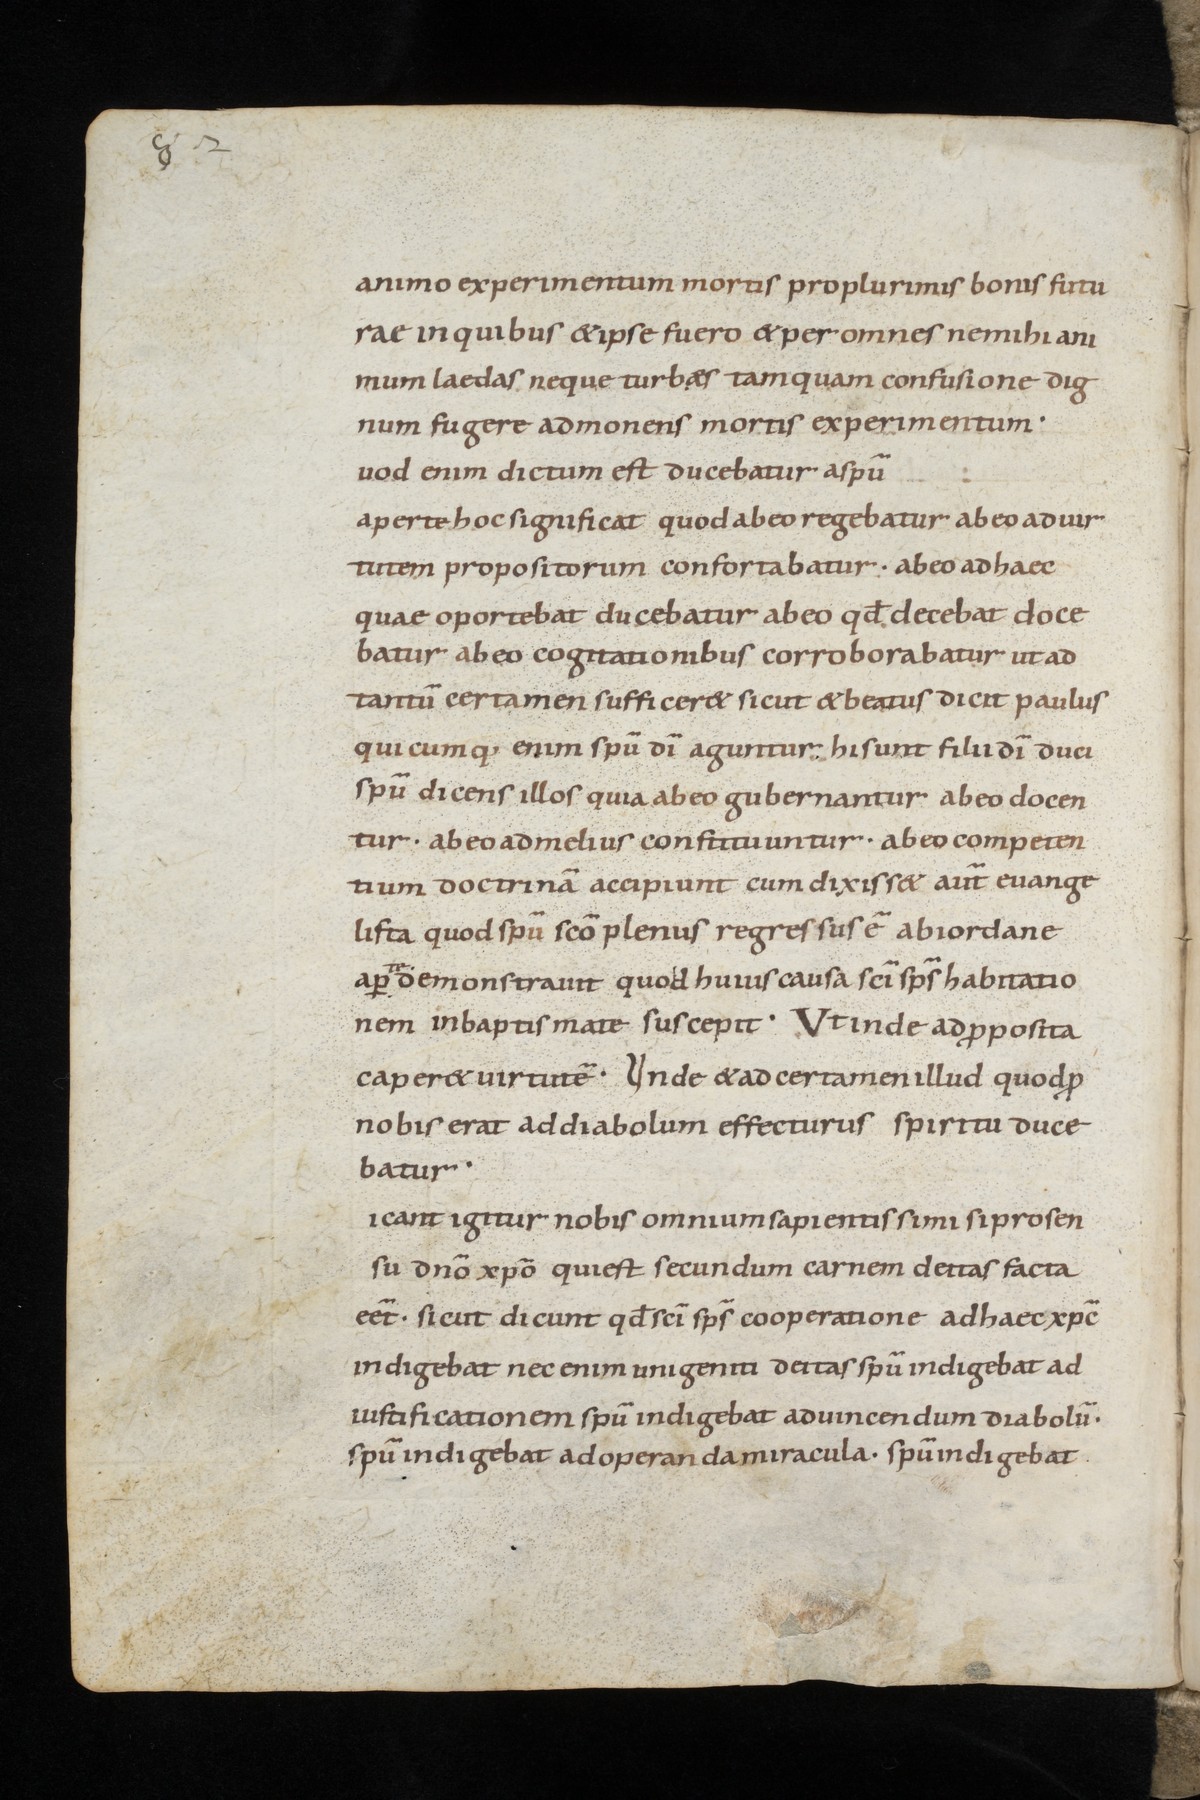 82
animo experimentum mortis pro plurimis bonis futu
rae in quibus & ipse fuero & per omnes ne mihi ani
mum laedas neque turbaes tamquam confusione dig
num fugere admonens mortis experimentum·
uod enim dictum est ducebatur a spū
aperte hoc significat quod ab eo regebatur ab eo ad uir
tutem propositorum confortabatur· ab eo ad haec
quae oportebat ducebatur ab eo qđ decebat doce
batur ab eo cogitationibus corroborabatur ut ad
tantū certamen sufficer& sicut & beatus dicit paulus
quicumq; enim spū dī aguntur: hi sunt filii dī duci
spū dicens illos quia ab eo gubernantur ab eo docen
tur· ab eo ad melius constituuntur· ab eo competen
tium doctrinā accipiunt cum dixiss& aūt euange
lista quod spū scō plenus regressus ē ab iordane
aꝑte demonstrauit quod huius causa scī sp̄s habitatio
nem in baptismate suscepit· Vt inde ad ꝓposita
caper& uirtutē· Unde & ad certamen illud quod ꝓ
nobis erat ad diabolum effecturus spiritu duce
batur·
icant igitur nobis omnium sapientissimi si pro sen
su dnō xpō qui est secundum carnem deitas facta
eēt· sicut dicunt qđ scī sp̄s cooperatione ad haec xpc̄
indigebat nec enim unigeniti deitas spū indigebat ad
iustificationem spū indigebat ad uincendum diabolū·
spū indigebat ad operanda miracula· spū indigebat